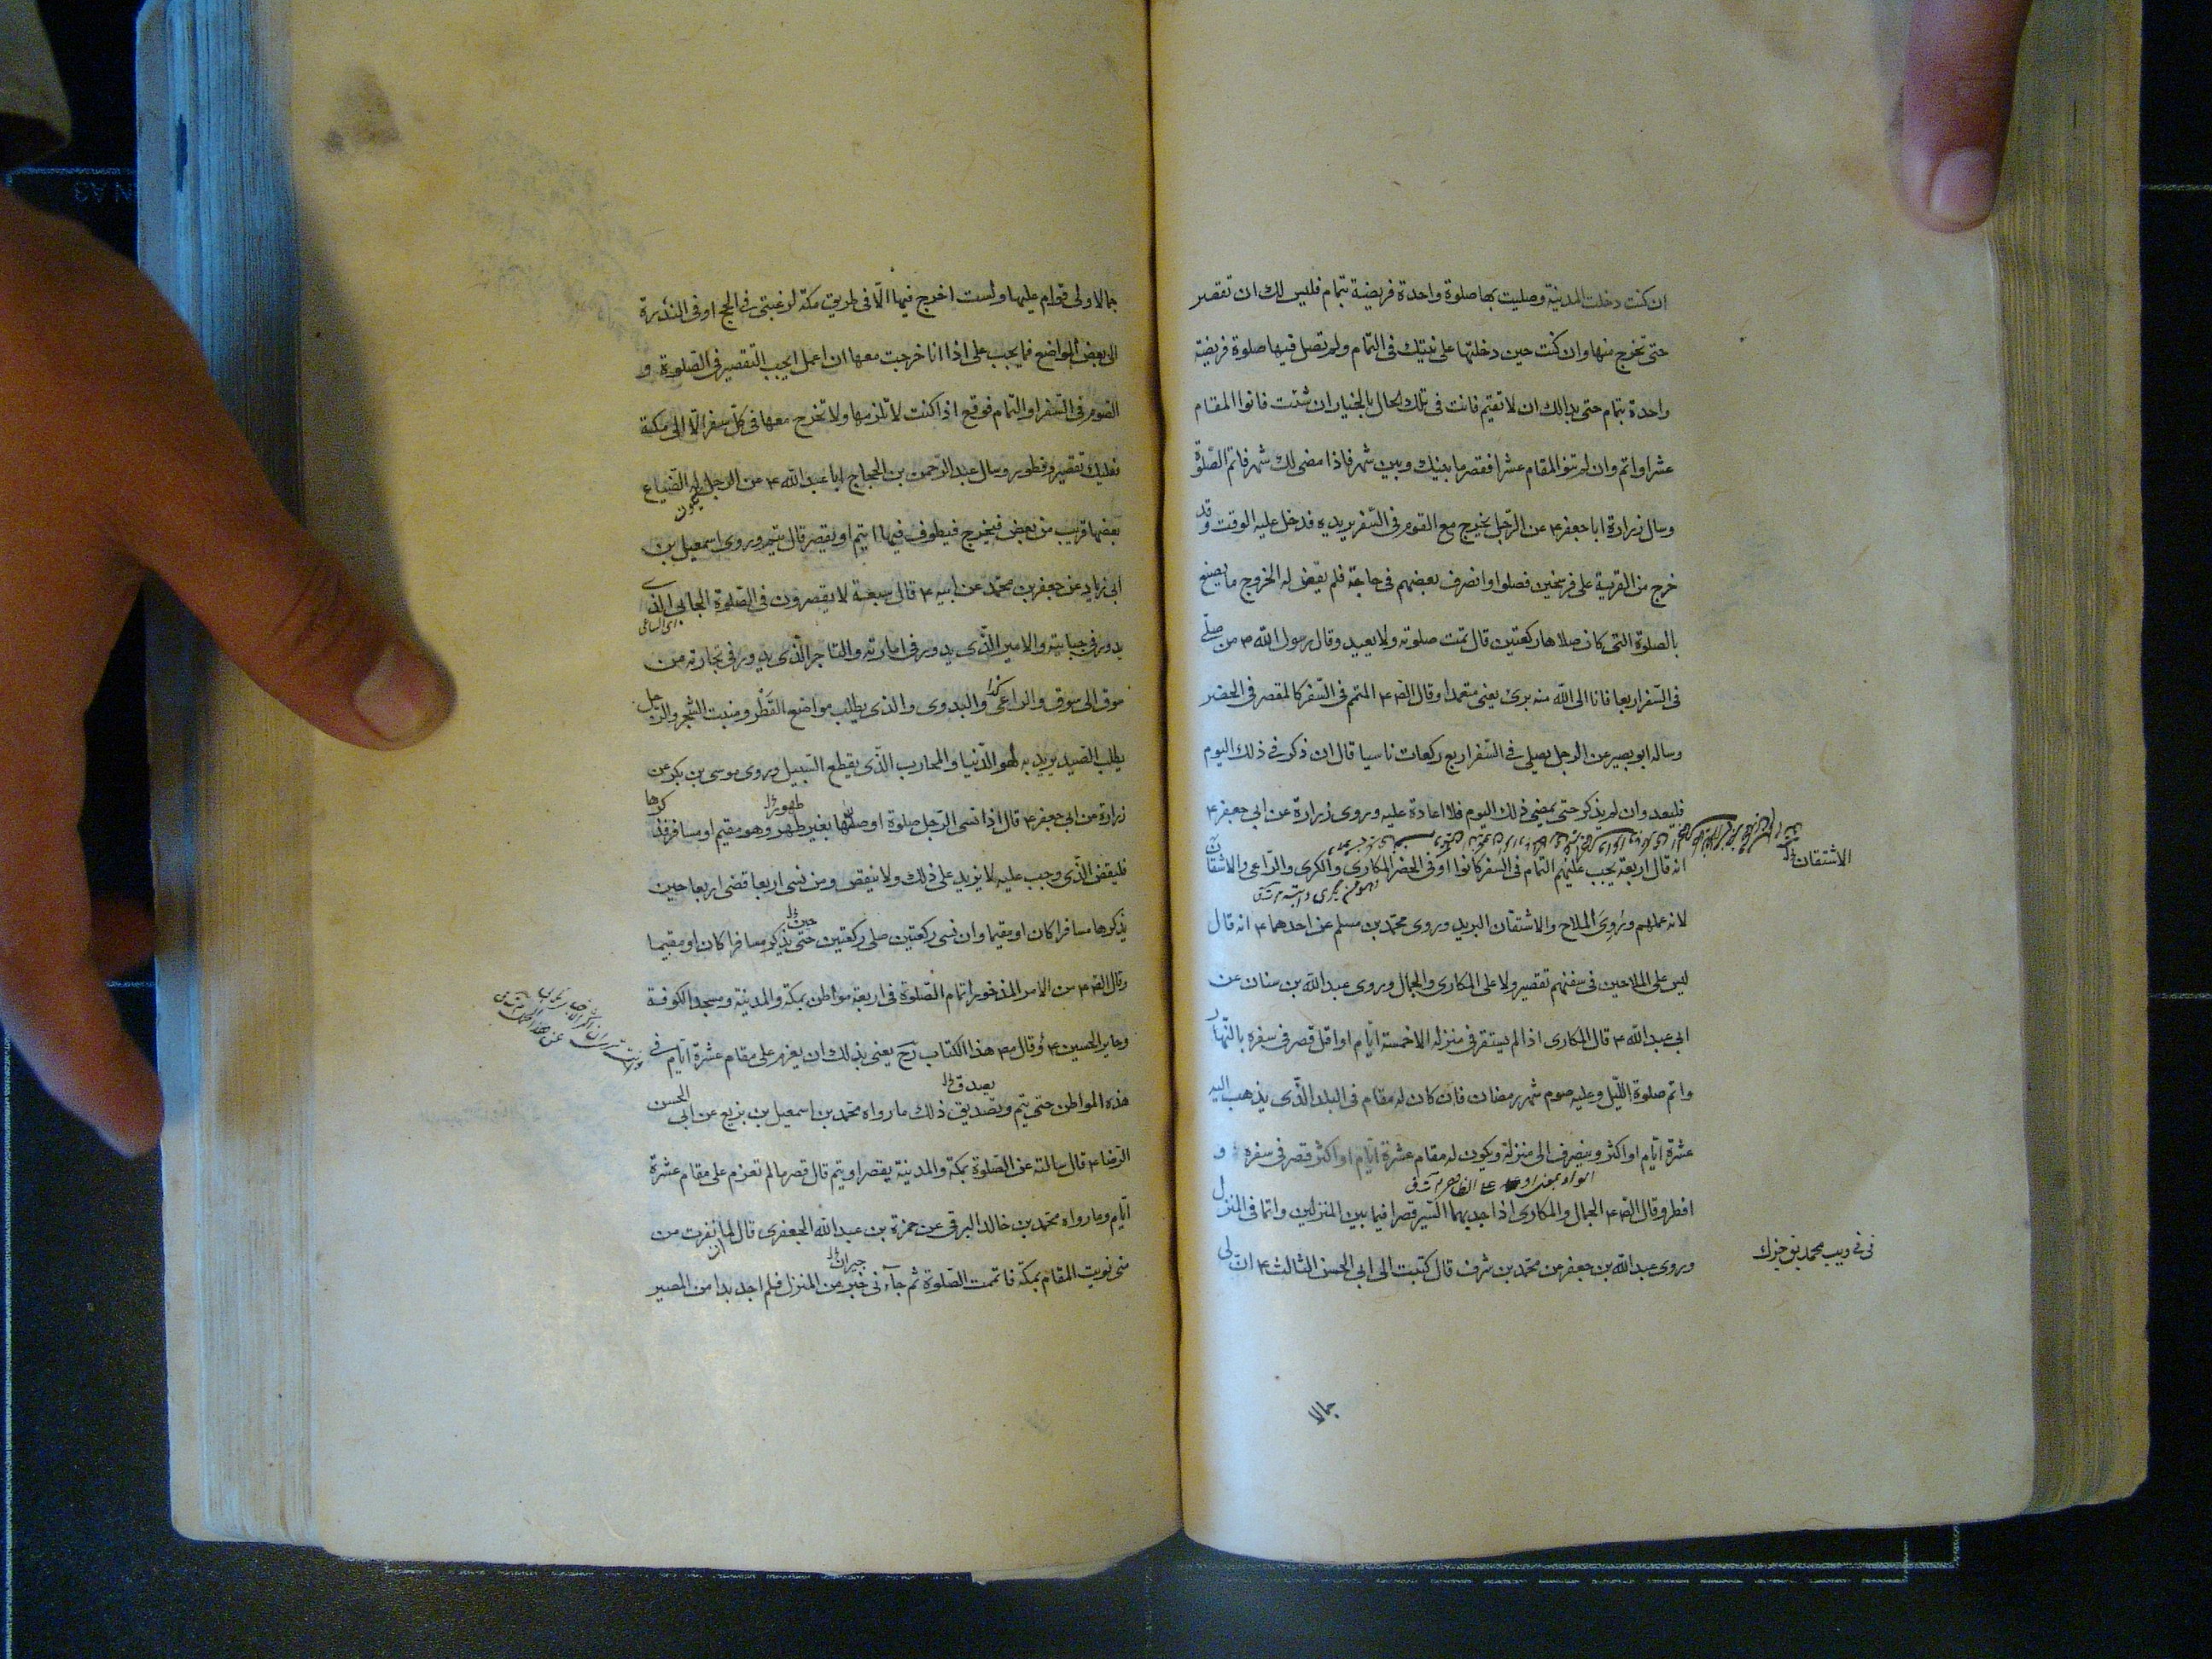 ان كنت دخلت المدينة وصليت بها صلوة واحدة فريضة بتمام فليس لك ان تقصر
حتى تخرج منها وان كنت حين دخلتها على نيتك في التمام ولم تصل فيها صلوة فريضة
واحدة بتمام حتى بدا لك ان لا تقيم فانت في تلك الحال بالخيار ان شئت فانوا المقام
عشرا واتم وان لم تنو المقام عشرا فقصر ما بينك وبين شهر فاذا مضى لك شهر فاتم الصلوة
وسال زرارة ابا جعفر ۴ عن الرجل يخرج مع القوم في السفر يريده فدخل عليه الوقت وقد
خرج من القرية على فرسخين فصلوا وانصرف بعضهم في حاجة فلم يقض له الخروج ما يصنع
بالصلوة التي كان صلاها ركعتين قال تمت صلوته ولا يعيد وقال رسول الله ص من صلى
في السفر اربعا فانا الى الله منه برئ يعني متعمدا وقال الص ۴ المتم في السفر كالمقصر في الحضر
وساله ابو بصير عن الرجل يصلي في السفر اربع ركعات ناسيا قال ان ذكر في ذلك اليوم
فليعد وان لم يذكر حتى يمضي ذلك اليوم فلا اعادة عليه وروى زرارة عن ابي جعفر ۴
الاشتقان
انه قال اربعة يجب عليهم التمام في السفر كانوا او في الحضر المكاري والكري والراعي والاشتقان
لانه عملهم وروي الملاح والاشتقان البريد وروى محمد بن مسلم عن احدهما ۴ انه قال
ليس على الملاحين في سفنهم تقصير ولا على المكاري والجمال وروى عبد الله بن سنان عن
ابي عبد الله ۴ قال المكاري اذا لم يستقر في منزله الا خمسة ايام او اقل قصر في سفره بالنهار
واتم صلوة الليل وعليه صوم شهر رمضان فان كان له مقام في البلد الذي يذهب اليه
عشرة ايام او اكثر وينصرف الى منزله ويكون له مقام عشرة ايام او اكثر قصر في سفره و
افطر وقال الص ۴ الجمال والمكاري اذا جد بهما السير قصرا فيما بين المنزلين واتما في المنزل
وروى عبد الله بن جعفر عن محمد بن شرف قال كتبت الى ابي الحسن الثالث ۴ ان لي
جمالا
جمالا ولي قوام عليها ولست اخرج فيها الا في طريق مكة لرغبتي في الحج او في الندرة
الى بعض المواضع فما يجب علي اذا انا خرجت معها ان اعمل ايجب التقصير في الصلوة و
الصوم في السفر او التمام فوقع اذا كنت لا تلزمها ولا تخرج معها في كل سفر الا الى مكة
فعليك تقصير وفطور وسال عبد الرحمن بن الحجاج ابا عبد الله ۴ عن الرجل له الضياع
بعضها قريب من بعض فيخرج فيطوف فيها ايتم او يقصر قال يتم وروى اسمعيل بن
ابي زياد عن جعفر بن محمد عن ابيه ۴ قال سبعة لا يقصرون في الصلوة الجابي الذي
اي الساعي
يدور في جبايته والامير الذي يدور في امارته والتاجر الذي يدور في تجارته من
سوق الى سوق والراعي والبدوي والذي يطلب مواضع القطر ومنبت الشجر والرجل
يطلب الصيد يريد به لهو الدنيا والمحارب الذي يقطع السبيل وروى موسى بن بكر عن
طهور
زرارة عن ابي جعفر ۴ قال اذا نسي الرجل صلوة او صلاها بغير طهر وهو مقيم او مسافر فذكرها
فليقض الذي وجب عليه لا يزيد على ذلك ولا ينقص ومن نسي اربعا قضى اربعا حين
حين
يذكرها مسافرا كان او مقيما وان نسي ركعتين صلى ركعتين حتى يذكر مسافرا كان او مقيما
وقال الص ۴ من الامر المذخور اتمام الصلوة في اربعة مواطن بمكة والمدينة ومسجد الكوفة
وحاير الحسين ۴ وقال مص هذا الكتاب رح يعني بذلك ان يعزم على مقام عشرة ايام في
يصدق
هذه المواطن حتى يتم وتصديق ذلك ما رواه محمد بن اسمعيل بن بزيع عن ابي الحسن
الرضا ۴ قال سالته عن الصلوة بمكة والمدينة يقصر او يتم قال قصر ما لم تعزم على مقام عشرة
ايام وما رواه محمد بن خالد البرقي عن حمزة بن عبد الله الجعفري قال لما ان نفرت من
جيران
منى نويت المقام بمكة فاتممت الصلوة ثم جاءني خبر من المنزل فلم اجد بدا من المصير